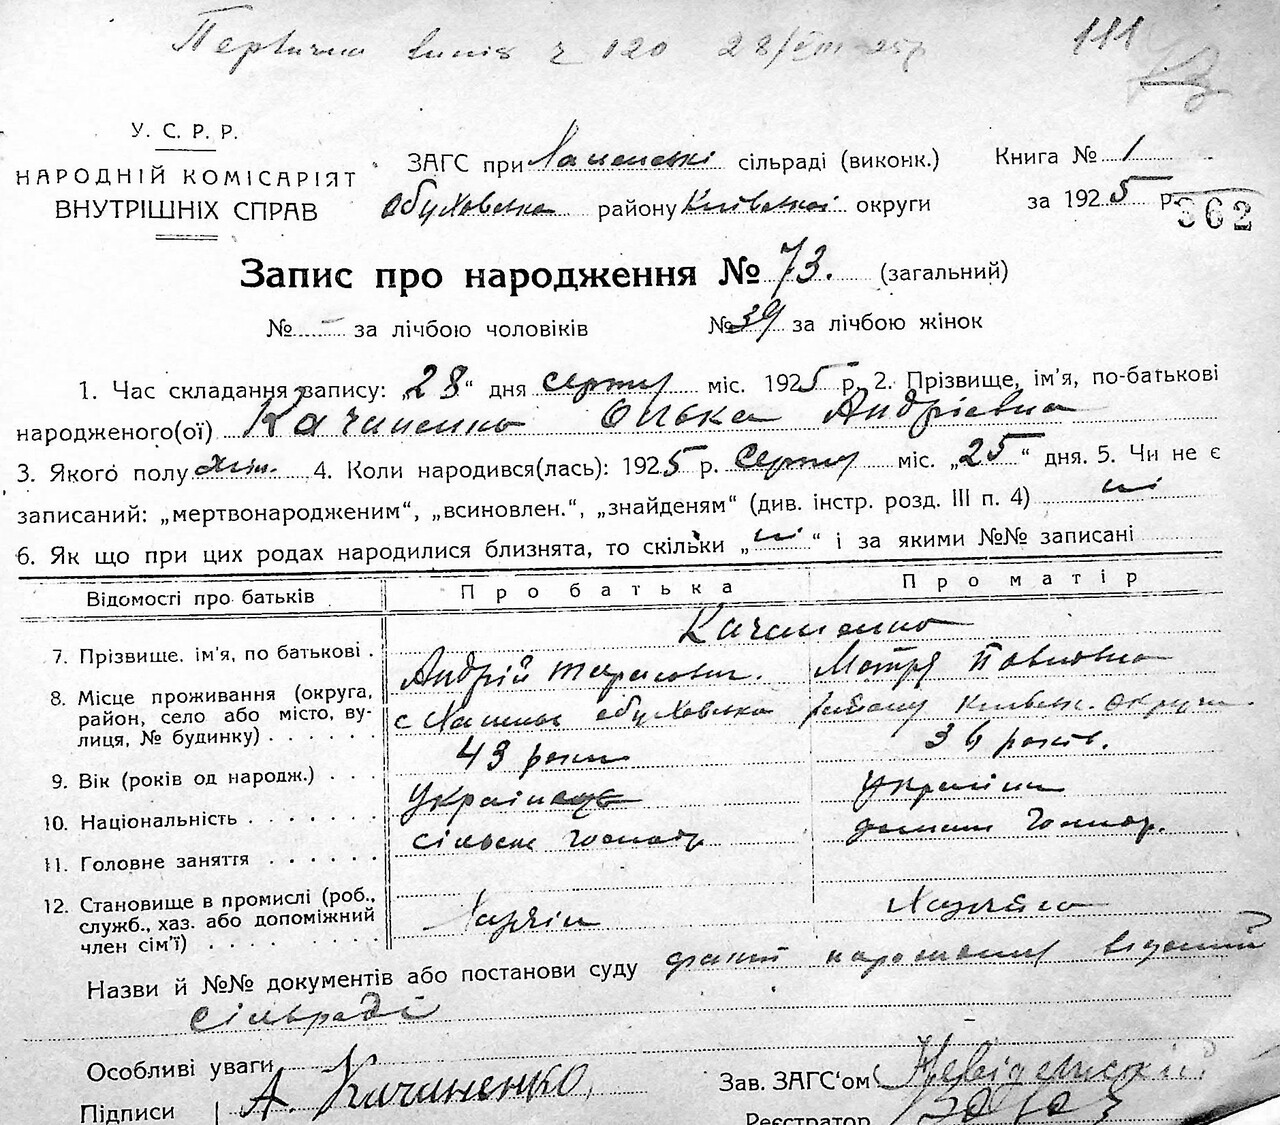 Первични випів ч 120 28/VIII 25р
111
У. С. Р. Р.
НАРОДНІЙ КОМІСАРІЯТ
ВНУТРІШНІХ СПРАВ
ЗАГС при сільраді (виконк.)
Обуховська району Київської округи
Книга № 1
за 1925 р.
362
Запис про народження № 73. (загальний)
№ - за лічбою чоловіків № 39 за лічбою жінок
1. Час складання запису: „28“ дня серпня міс. 1925 р. 2. Прізвище, ім'я, по-батькові
народженого(ої) Качаненко Олька Андріевна
3. Якого полу жін. 4. Коли народився(лась): 1925 р. Серпня міс. „25“ дня. 5. Чи не є
записаний: „мертвонародженим“, „всиновлен.“, „знайденям“ (див. інстр. розд. III п. 4) ні
6. Як що при цих родах народилися близнята, то скільки „ні“ і за якими №№ записані
Відомості про батьків Про батька Про матір
Качаненко
7. Прізвище, ім'я, по батькові . Андрій Тарасович. Мотря Павловна
8. Місце проживання (округа, район, село або місто, вулиця, № будинку) . . . . . . с Обуховська району Київськ. округи
9. Вік (років од народж.) . . . 43 роки 36 років.
10. Національність . . . . . . . Українець Українка
11. Головне заняття . . . . . . сільське господ домашн господ.
12. Становище в промислі (роб., служб., хаз. або допоміжний член сім'ї) . . . . . . . . Хазяїн Хазяйка
Назви й №№ документів або постанови суду факт народження відомий
сільраді
Особливі уваги
Підписи А. Качаненко
Зав. ЗАГС'ом
Реєстратор